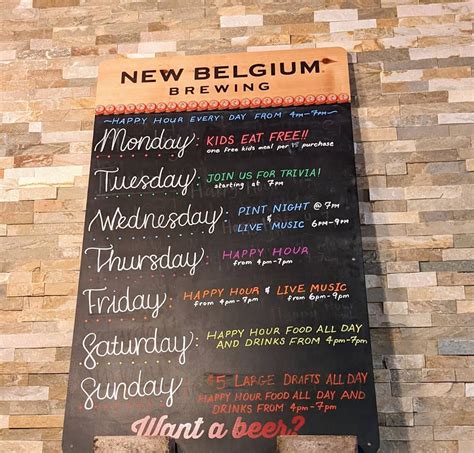 NEW BELGIUM
BREWING
~HAPPY HOUR EVERY DAY FROM 4pm-7pm~
Monday: KIDS EAT FREE!!
one free kids meal per 15 purchase
Tuesday: JOIN US FOR TRIVIA!
starting at 7pm
Wednesday: PINT NIGHT @ 7pm
&
LIVE MUSIC 6pm-9pm
Thursday: HAPPY HOUR
from 4pm-7pm
Friday: HAPPY HOUR & LIVE MUSIC
from 4pm-7pm from 6pm-9pm
Saturday: HAPPY HOUR FOOD ALL DAY
AND DRINKS FROM 4pm-7pm
Sunday: $5 LARGE DRAFTS ALL DAY
HAPPY HOUR FOOD ALL DAY AND
DRINKS FROM 4pm-7pm
Want a beer?